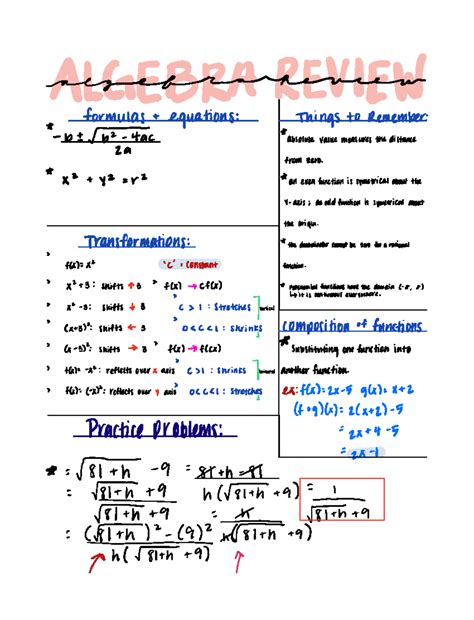 ALGEBRA REVIEW
algebra review
formulas + equations:
* -b ± √b² - 4ac
2a
* x² + y² = r²
Things to Remember:
* Absolute value measures the distance
from zero.
* an even function is symetrical about the
y-axis ; an odd function is symetrical about
the origin.
* the denominator cannot be zero for a rational
function.
* polynomial functions have the domain (-∞, ∞)
↳ it is continuous everywhere.
Transformations:
f(x) = x² "c" = constant
x² + 3 : shifts ↑ 3 f(x) → cf(x)
x² - 3 : shifts ↓ 3 c > 1 : stretches vertical
(x+3)² : shifts ← 3 0 < c < 1 : shrinks
(x-3)² : shifts → 3 f(x) → f(cx)
f(x) = -x² : reflects over x axis c > 1 : shrinks horizontal
f(x) = (-x)² : reflects over y axis 0 < c < 1 : stretches
composition of functions
* Substituting one function into
another function.
ex: f(x) = 2x-5 g(x) = x+2
(f∘g)(x) = 2(x+2) - 5
= 2x + 4 - 5
= 2x - 1
Practice Problems:
* = √81+h - 9 = 81+h - 81 = 1
= √81+h + 9 h(√81+h + 9) √81+h + 9
√81+h + 9 = h
= (√81+h)² - (9)² h(√81+h + 9)
h(√81+h + 9)